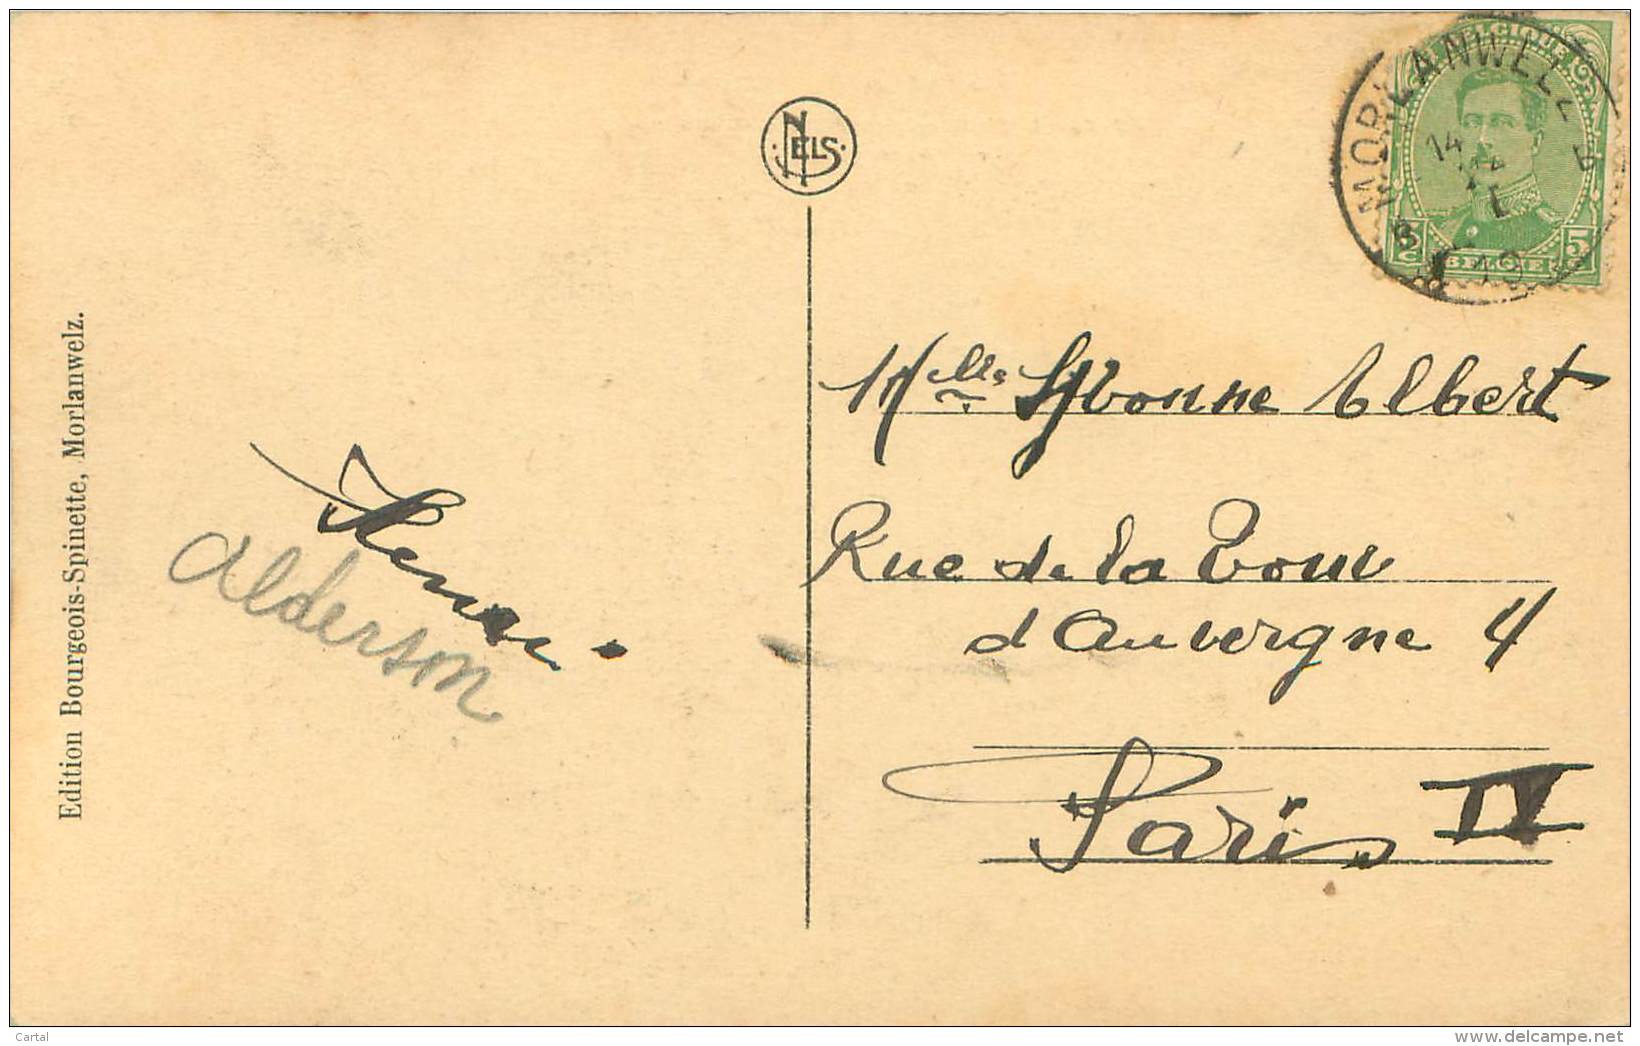 Edition Bourgeois-Spinette, Morlanwelz.
NELS
MORLANWELZ
14
19
BELGIQUE
5
5
C
BELGIE
Henri
Alderson
Mlle Yvonne Albert
Rue de la Tour
d'Auvergne 4
Paris IV
Cartal
www.delcampe.net